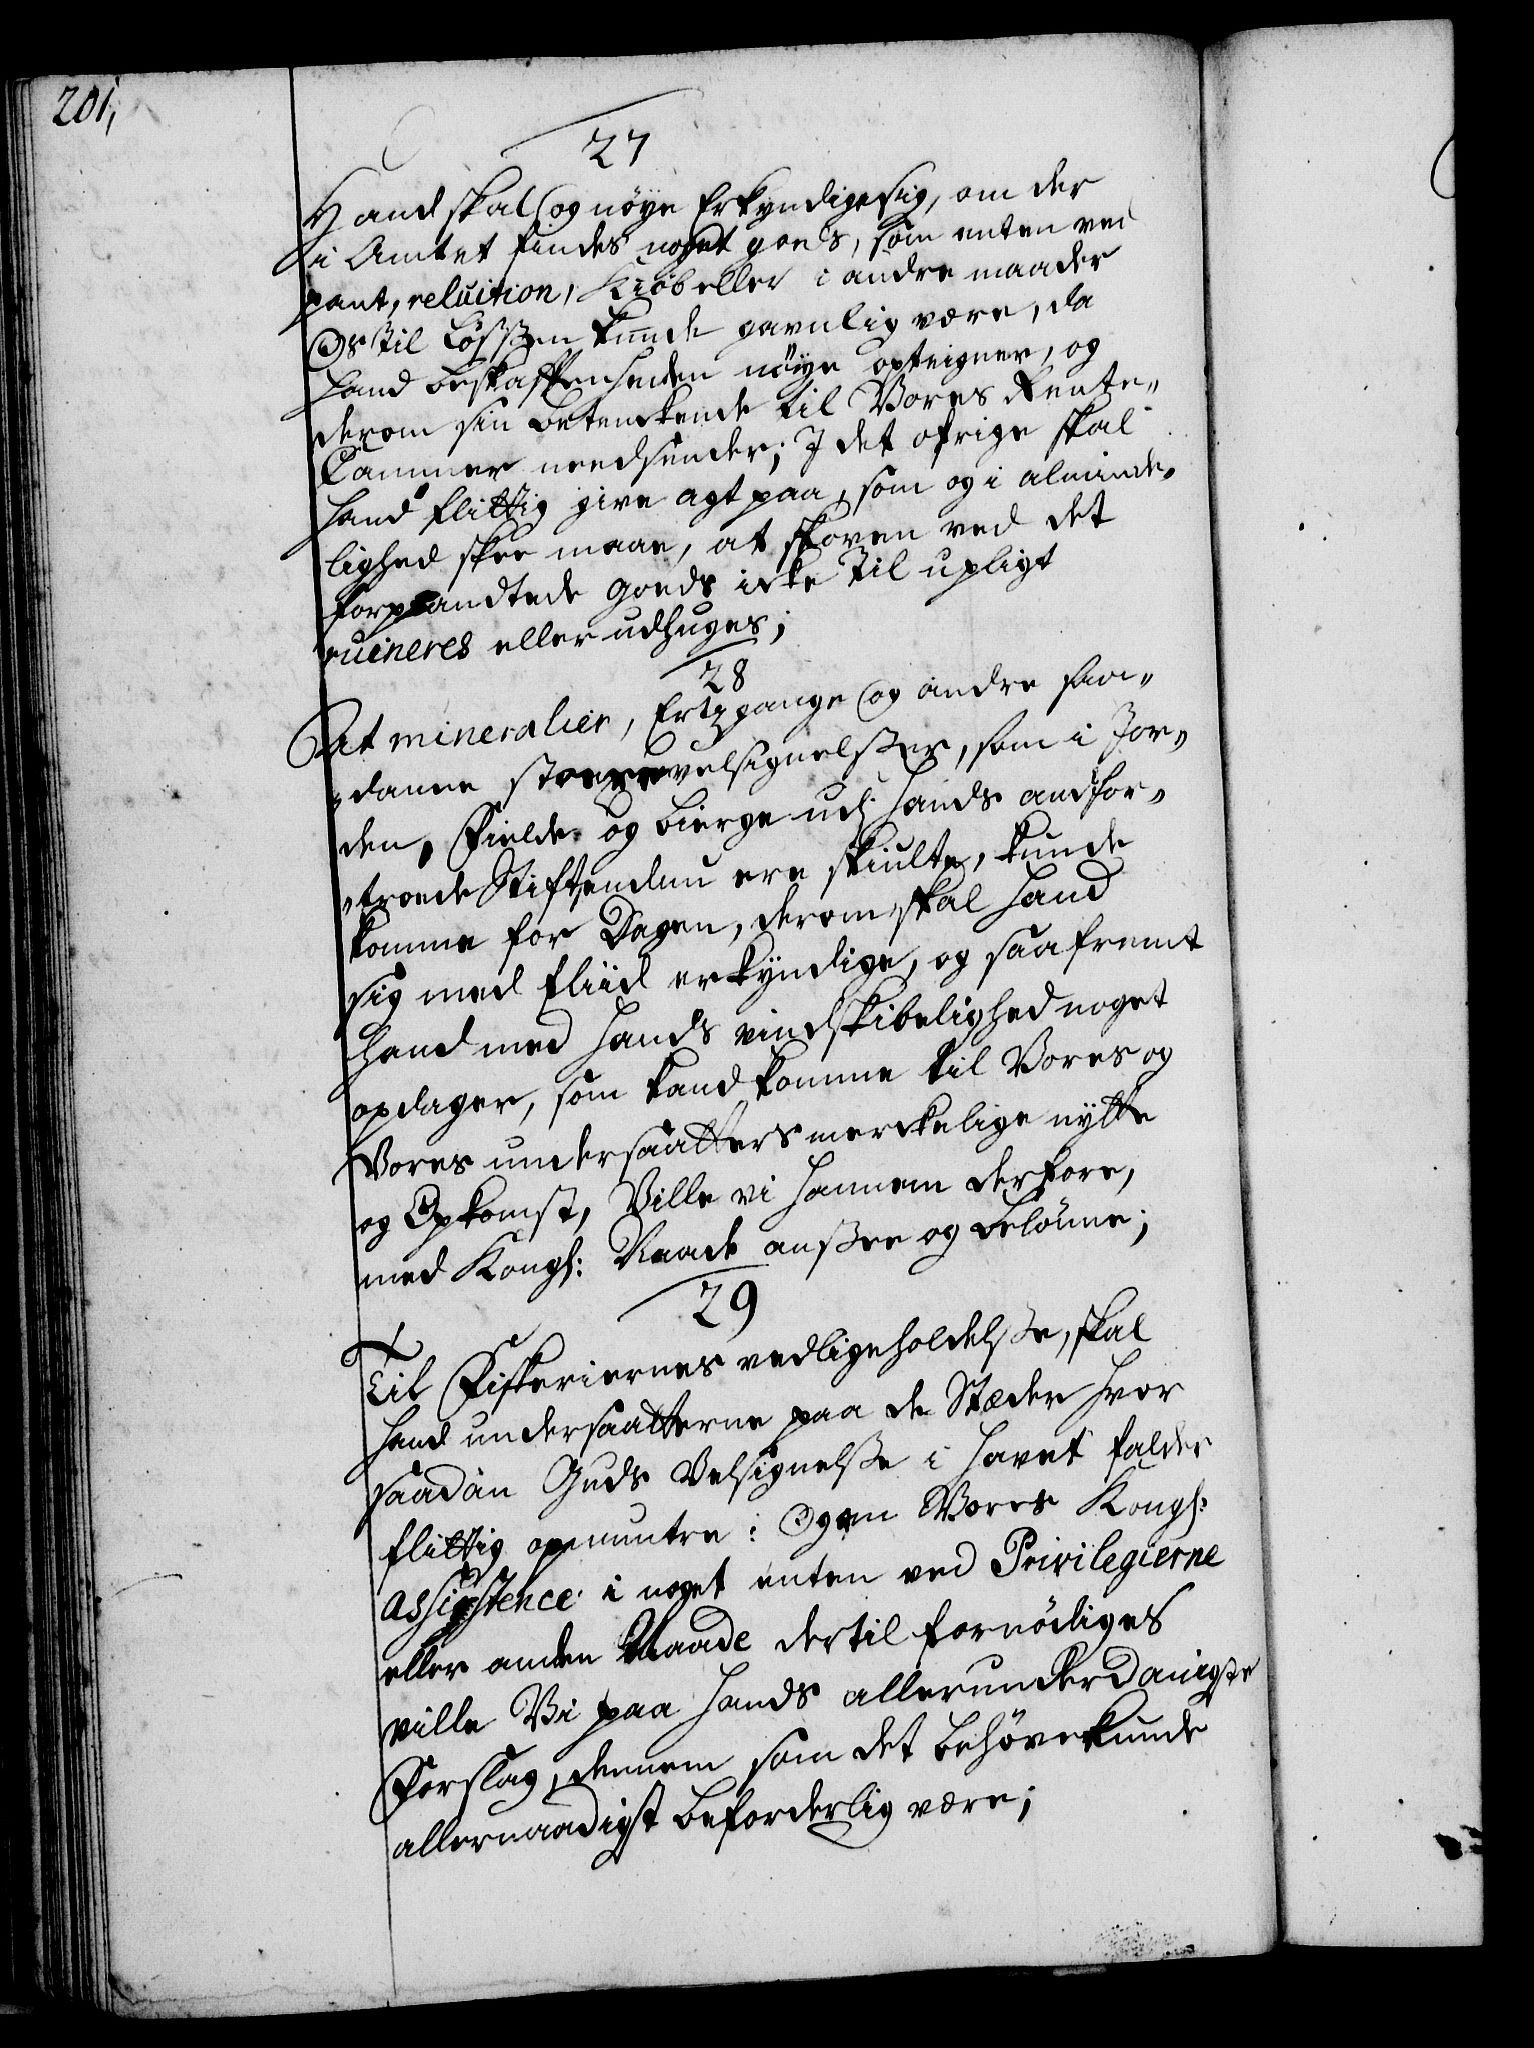 201,
27
Hand skal og nöye Erkyndige sig, om der
i Amtet findes noget goeds, som enten ved
pant, reluition, Kiöb eller i andre maader
Os til Löszen kunde gavnlig være, da
hand beskaffenheden nöye opteigner, og
derom sin betenckende til Vores Rente-
Cammer needsender; I det öfrige skal
hand flittig give agt paa, som og i alminde-
lighed skee maae, at skoven ved det
forpandtede goeds icke til upligt
ruineres eller udhuges;
28
At mineralier, Ertzgange og andre saa-
danne velsignelszer, som i Jor-
den, Fielde og bierge udj hands anfor-
troede Stiftsendnu ere skiulte, kunde
komme for Dagen, derom skal hand
sig med fliid erkyndige, og saafremt
hand med hands vindskibelighed noget
opdager, som kand komme til Vores og
Vores undersaatters merckelige nytte
og Opkomst, Ville vi hannem derfore,
med Kongl: Naade ansee og belönne;
29
Til Fiskeriernes vedligeholdelsze, skal
hand undersaatterne paa de Stæder hvor
saadan Guds Velsignelsze i havet falder
flittig opmuntre: Og om Vores Kongl:
assistence i noget enten ved Privilegierne
eller anden Naade dertil fornödiges
ville Vi paa hands allerunderdanigste
Forslag, dennem som det behöve kunde
allernaadigst beforderlig være;